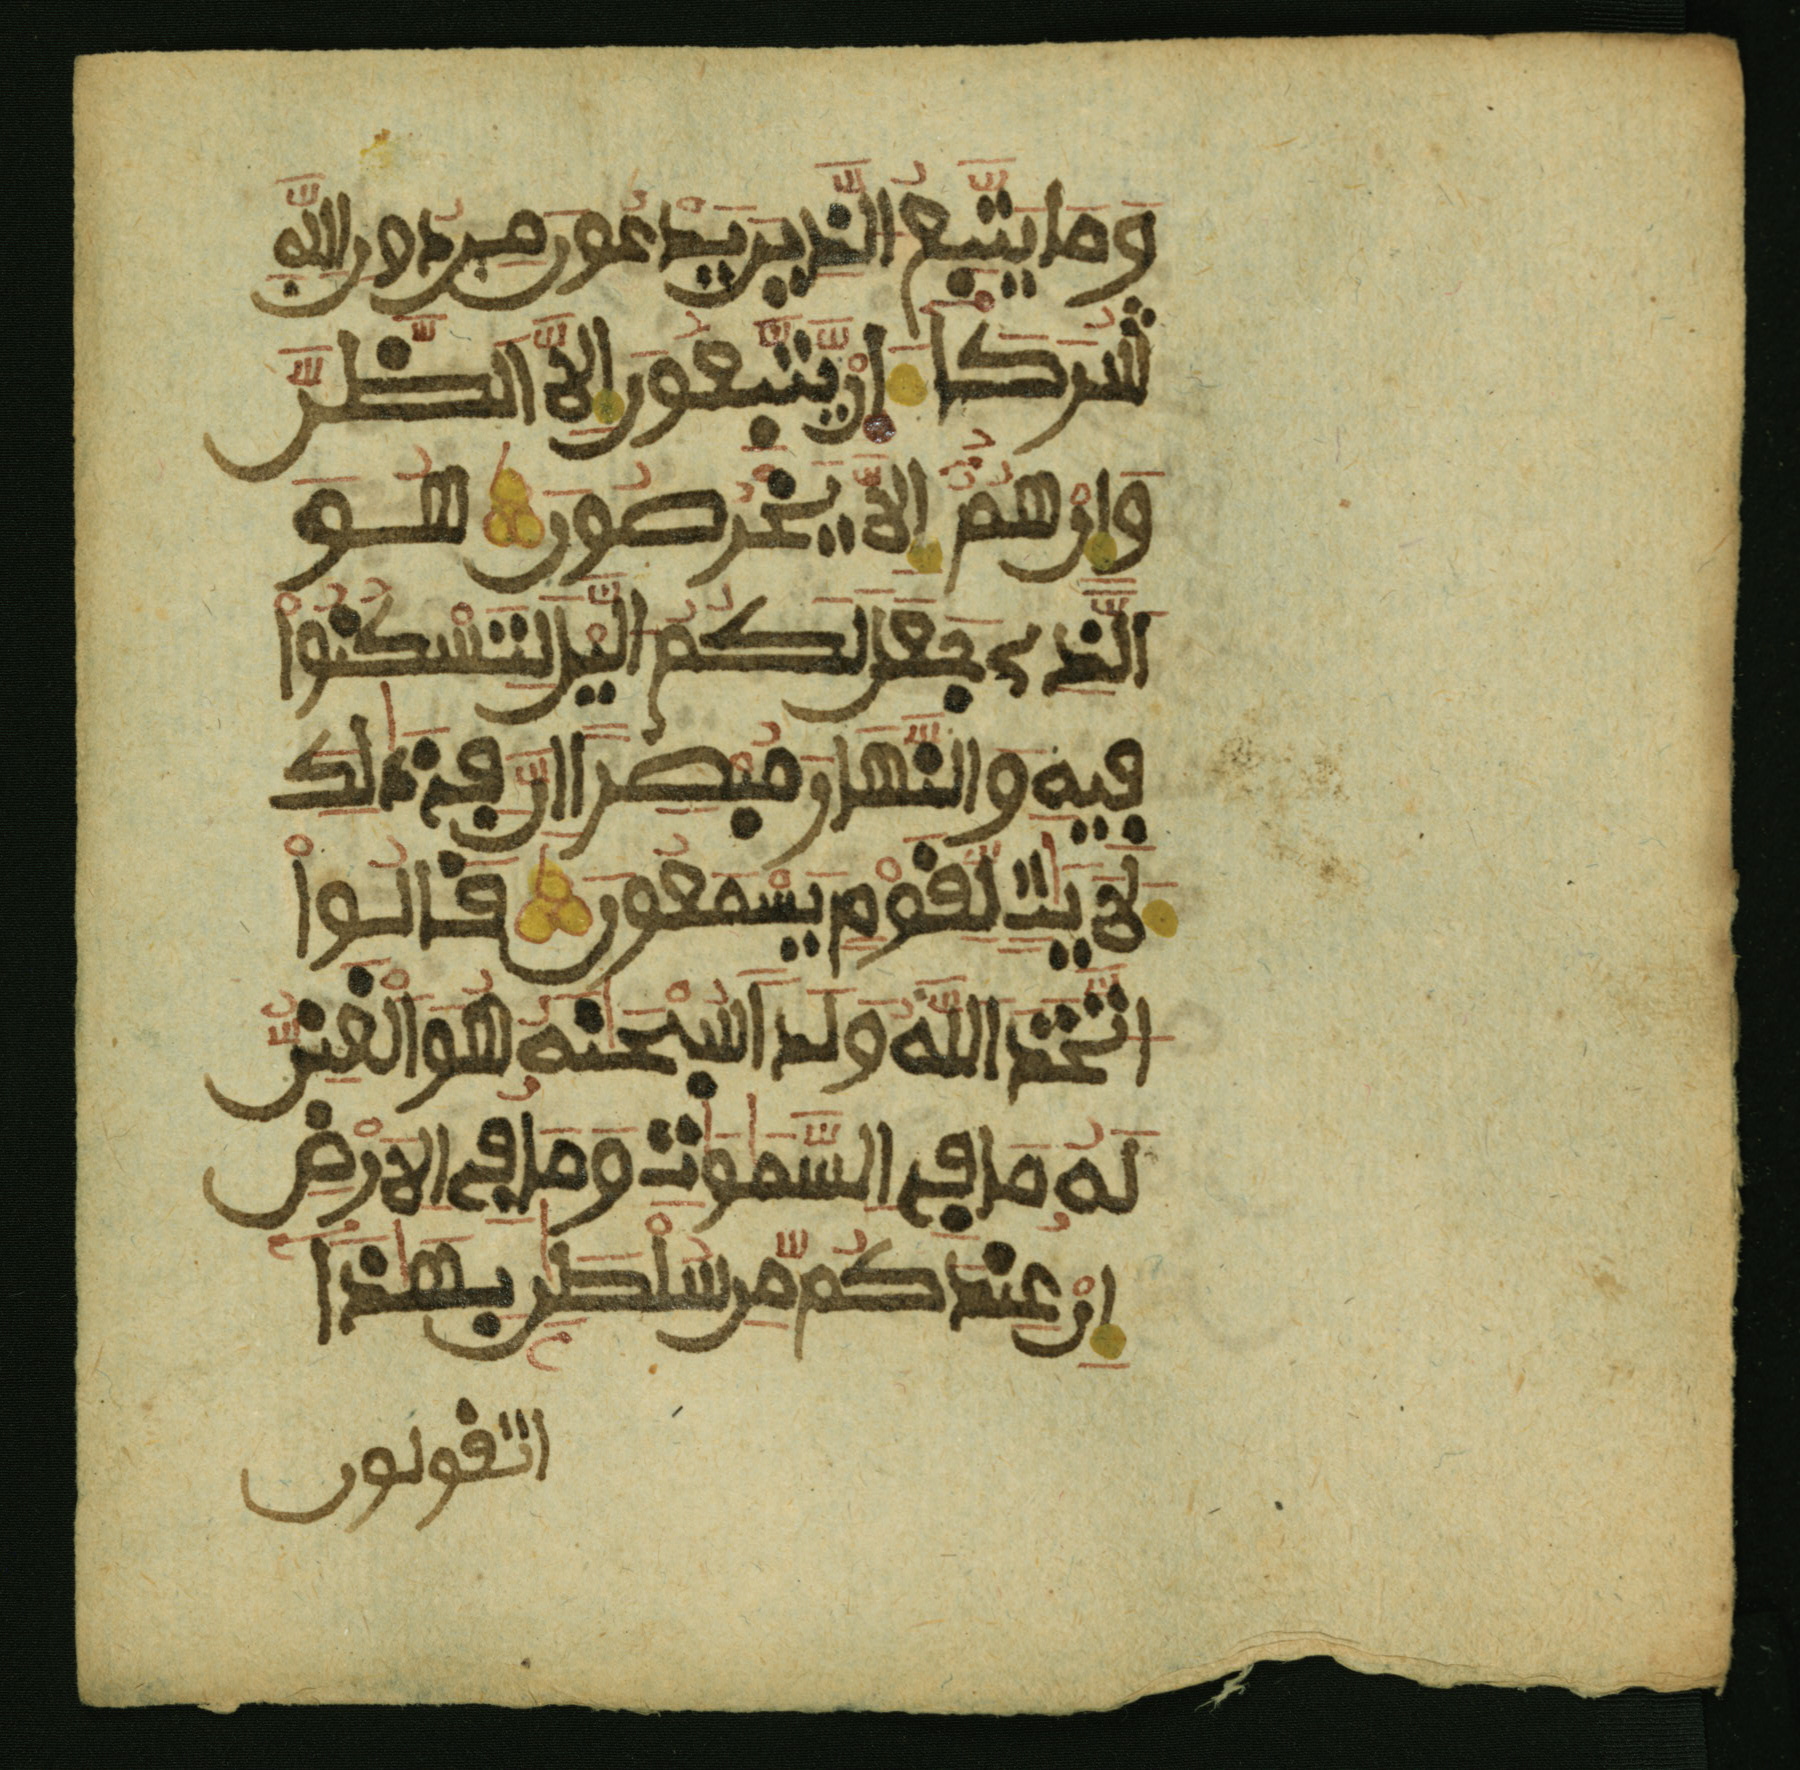 وَمَا يَتَّبِعُ الَّذِينَ يَدْعُونَ مِن دُونِ اللَّهِ
شُرَكَآءَ اِنْ يَّتَّبِعُونَ إِلاَّ اَلظَّنَّ
وَإِنْ هُمُ إِلاَّ يَخْرُصُونَ هُوَ
اَلَّذِے جَعَلَ لَكُمُ اليْلَ لِتَسْكُنُواْ
فِيهِ وَالنَّهَارَ مُبْصِرًا اِنَّ فِے ذَٰلِكَ
لَأٓيَٰتٍ لِّقَوْمٍ يَسْمَعُونَ قَالُواْ
اتَّخَذَ اَللَّهُ وَلَدًا سُبْحَٰنَهُ هُوَ اَلْغَنِيُّ
لَهُ مَا فِے السَّمَٰوَٰتِ وَمَا فِے الاَرْضِ
إِنْ عِندَكُم مِّن سُلْطَٰنٍ بِهَٰذَآ
اتقولون